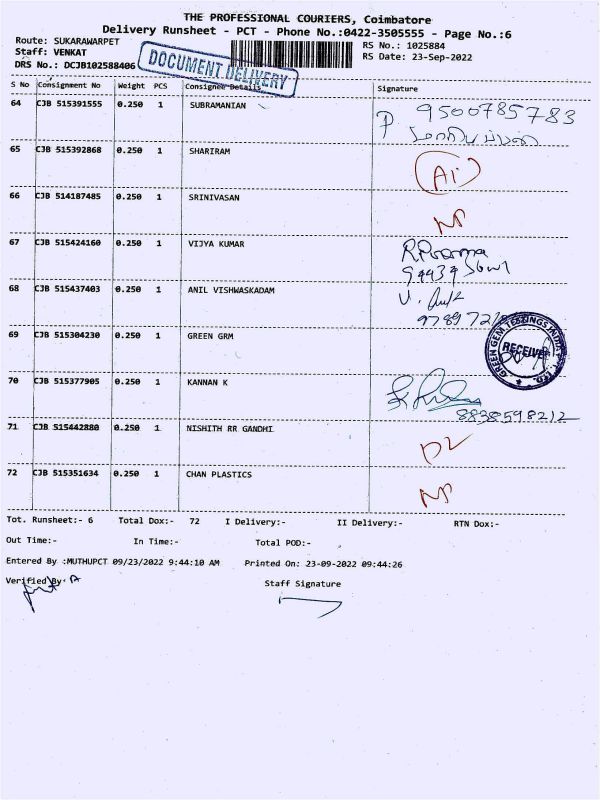 THE PROFESSIONAL COURIERS, Coimbatore
Delivery Runsheet - PCT - Phone No.:0422-3505555 - Page No.:6
Route: SUKARAWARPET
RS No.: 1025884
Staff: VENKAT
RS Date: 23-Sep-2022
DRS No.: DCJB102588406
DOCUMENT DELIVERY
S No Consignment No Weight PCS Consignee Details Signature
64 CJB 515391555 0.250 1 SUBRAMANIAN P 9500785783
65 CJB 515392868 0.250 1 SHARIRAM
66 CJB 514187485 0.250 1 SRINIVASAN
67 CJB 515424160 0.250 1 VIJYA KUMAR
68 CJB 515437403 0.250 1 ANIL VISHWASKADAM
69 CJB 515304230 0.250 1 GREEN GRM
RECEIVED
70 CJB 515377905 0.250 1 KANNAN K
8838598212
71 CJB 515442880 0.250 1 NISHITH RR GANDHI DL
72 CJB 515351634 0.250 1 CHAN PLASTICS
Tot. Runsheet:- 6 Total Dox:- 72 I Delivery:- II Delivery:- RTN Dox:-
Out Time:- In Time:- Total POD:-
Entered By :MUTHUPCT 09/23/2022 9:44:10 AM Printed On: 23-09-2022 09:44:26
Verified By:
Staff Signature